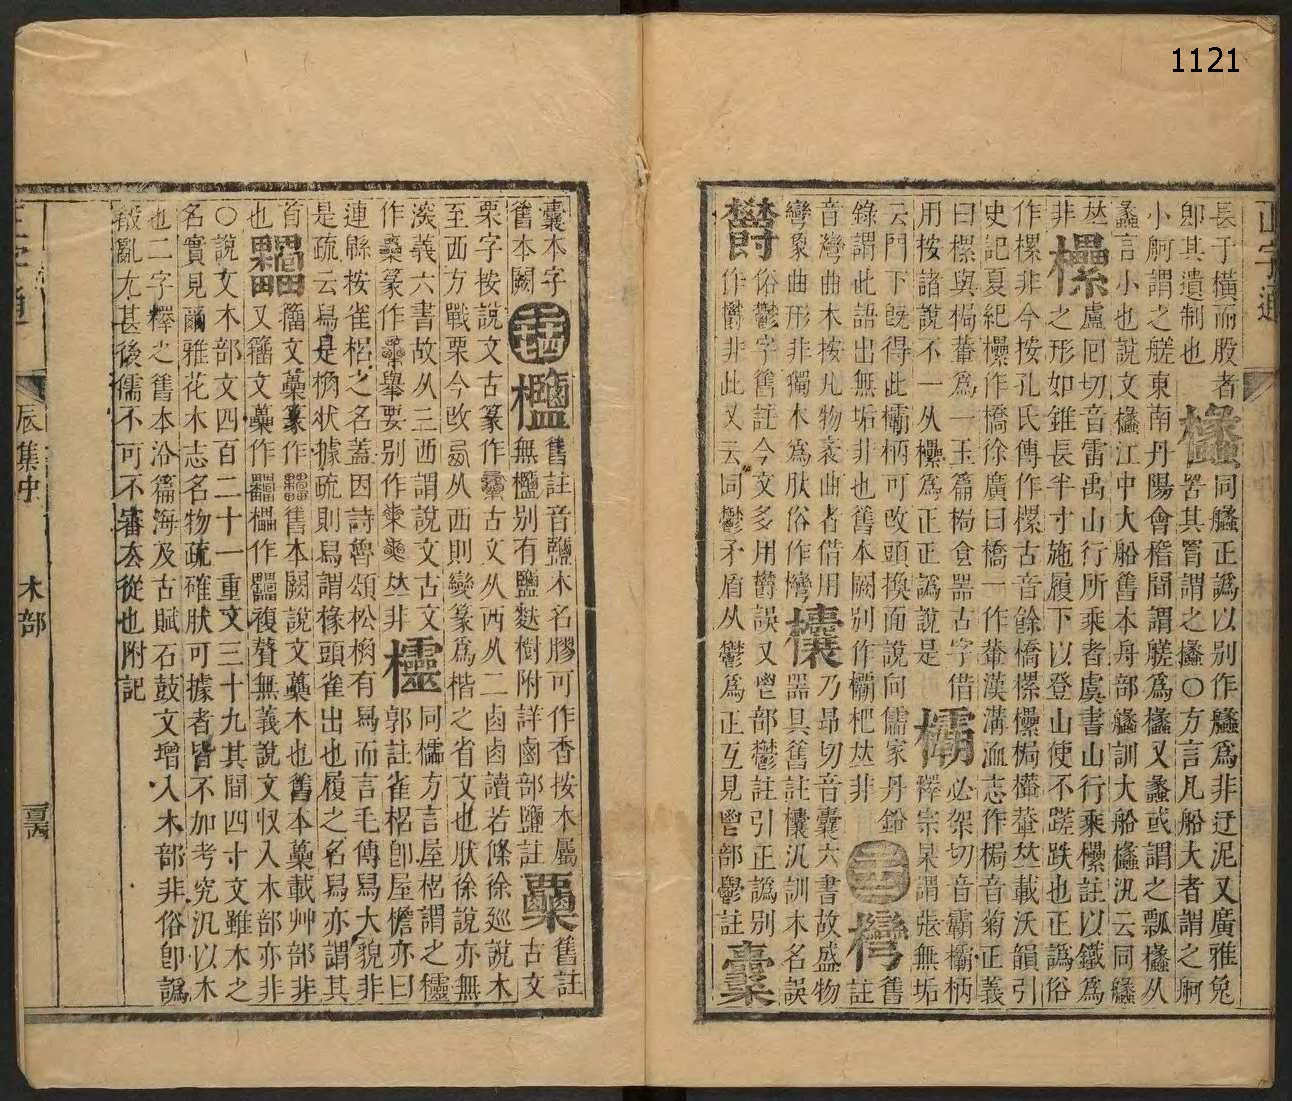 1121
正字通
長于橫而股者
卽其遺制也
欚
同䑄正譌以别作䑄爲非迂泥又廣雅㲋
罟其罥謂之欚〇方言凡船大者謂之舸
小舸謂之艖東南丹陽會稽間謂艖爲欚又蠡或謂之瓢欚从
蠡言小也說文欚江中大船舊本舟部䑄訓大船欚汎云同䑄
夶
非
欙
盧囘切音雷禹山行所乘者虞書山行乘欙註以鐵爲
之形如錐長半寸施履下以登山使不蹉跌也正譌俗
作樏非今按孔氏傳作樏古音餘憍樏欙梮輂夶載沃韻引
史記夏紀欙作橋徐廣曰橋一作輂漢溝洫志作梮音菊正義
曰樏與梮輂爲一玉篇梮食器古字借
用按諸說不一从欙爲正正譌說是
欛
必架切音霸欛柄
釋宗杲謂張無垢
云門下旣得此欛柄可改頭換面說向儒家丹鉛
錄謂此語出無垢非也舊本闕别作杷夶非
二十四
舊
註
音灣曲木按凡物衺曲者借用
彎象曲形非獨木爲肰俗作灣
欜
乃昻切音囊六書故盛物
器具舊註欜汎訓木名誤
欝
俗鬱字舊註今文多用欝誤又鬯部鬱註引正譌别
作欎非此又云同鬱矛盾从鬱爲正互見鬯部鬱註
囊本字
舊本闕
二十四
舊註音鹽木名膠可作香按木屬
無别有鹽麩樹附詳鹵部鹽註
舊註
古文
栗字按說文古篆作古文从西从二鹵鹵讀若條徐巡說木
至西方戰栗今改从西則變篆爲楷之省文也肰徐說亦無
深義六書故从三西謂說文古文
作篆作舉要别作夶非
欞
同檽方言屋梠謂之欞
郭註雀梠卽屋檐亦曰
連緜按雀梠之名蓋因詩魯頌松桷有舄而言毛傳舄大貌非
是疏云舄是桷狀據疏則舄謂椽頭雀出也履之名舄亦謂其
首
也
籀文篆作舊本闕說文木也舊本載艸部非
又籀文作作複贅無義說文収入木部亦非
〇說文木部文四百二十一重文三十九其間四十文雖木之
名實見爾雅花木志名物疏確肰可據者皆不加考究汎以木
也二字釋之舊本沿篇海及古賦石鼓文增入木部非俗卽譌
殽亂尤甚後儒不可不審厺從也附記
正字通
辰集中
木部